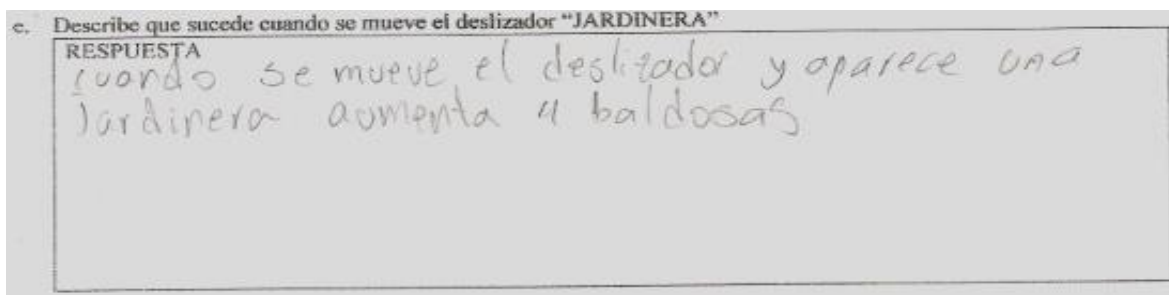 e. Describe que sucede cuando se mueve el deslizador “JARDINERA”
RESPUESTA
cuando se mueve el deslizador y aparece una
Jardinera aumenta 4 baldosas